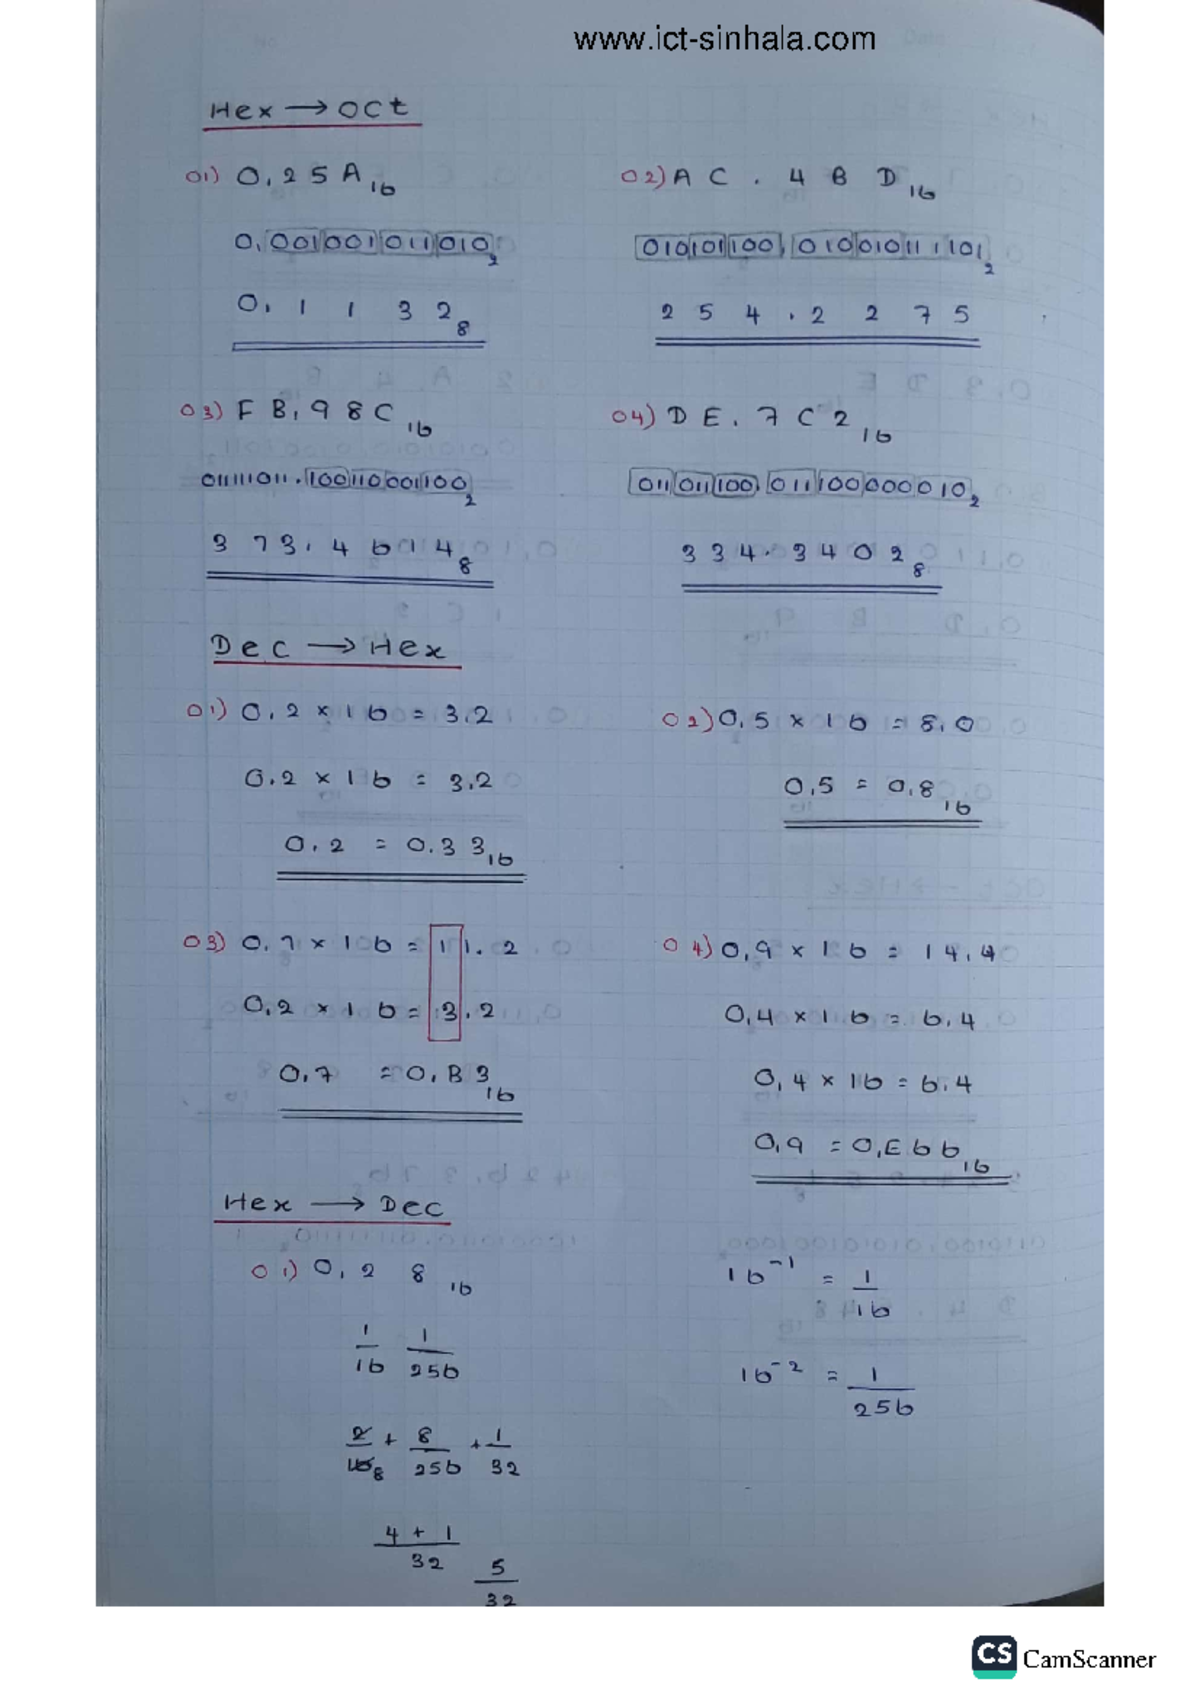 www.ict-sinhala.com
Hex → Oct
01) 0.25A16
0.0010010110102
0.11328
02) AC.4BD16
010101100.0100101111012
254.2275
03) FB.98C16
011111011.1001100011002
373.46148
04) DE.7C216
011011100.0111000000102
334.34028
Dec → Hex
01) 0.2 × 16 = 3.2
0.2 × 16 = 3.2
0.2 = 0.3316
02) 0.5 × 16 = 8.0
0.5 = 0.816
03) 0.7 × 16 = 11.2
0.2 × 16 = 3.2
0.7 = 0.B316
04) 0.9 × 16 = 14.4
0.4 × 16 = 6.4
0.4 × 16 = 6.4
0.9 = 0.E6616
Hex → Dec
01) 0.2816
1/16 1/256
2/16 8 + 8/256 + 1/32
4 + 1/32
5/32
16-1 = 1/16
16-2 = 1/256
CS CamScanner